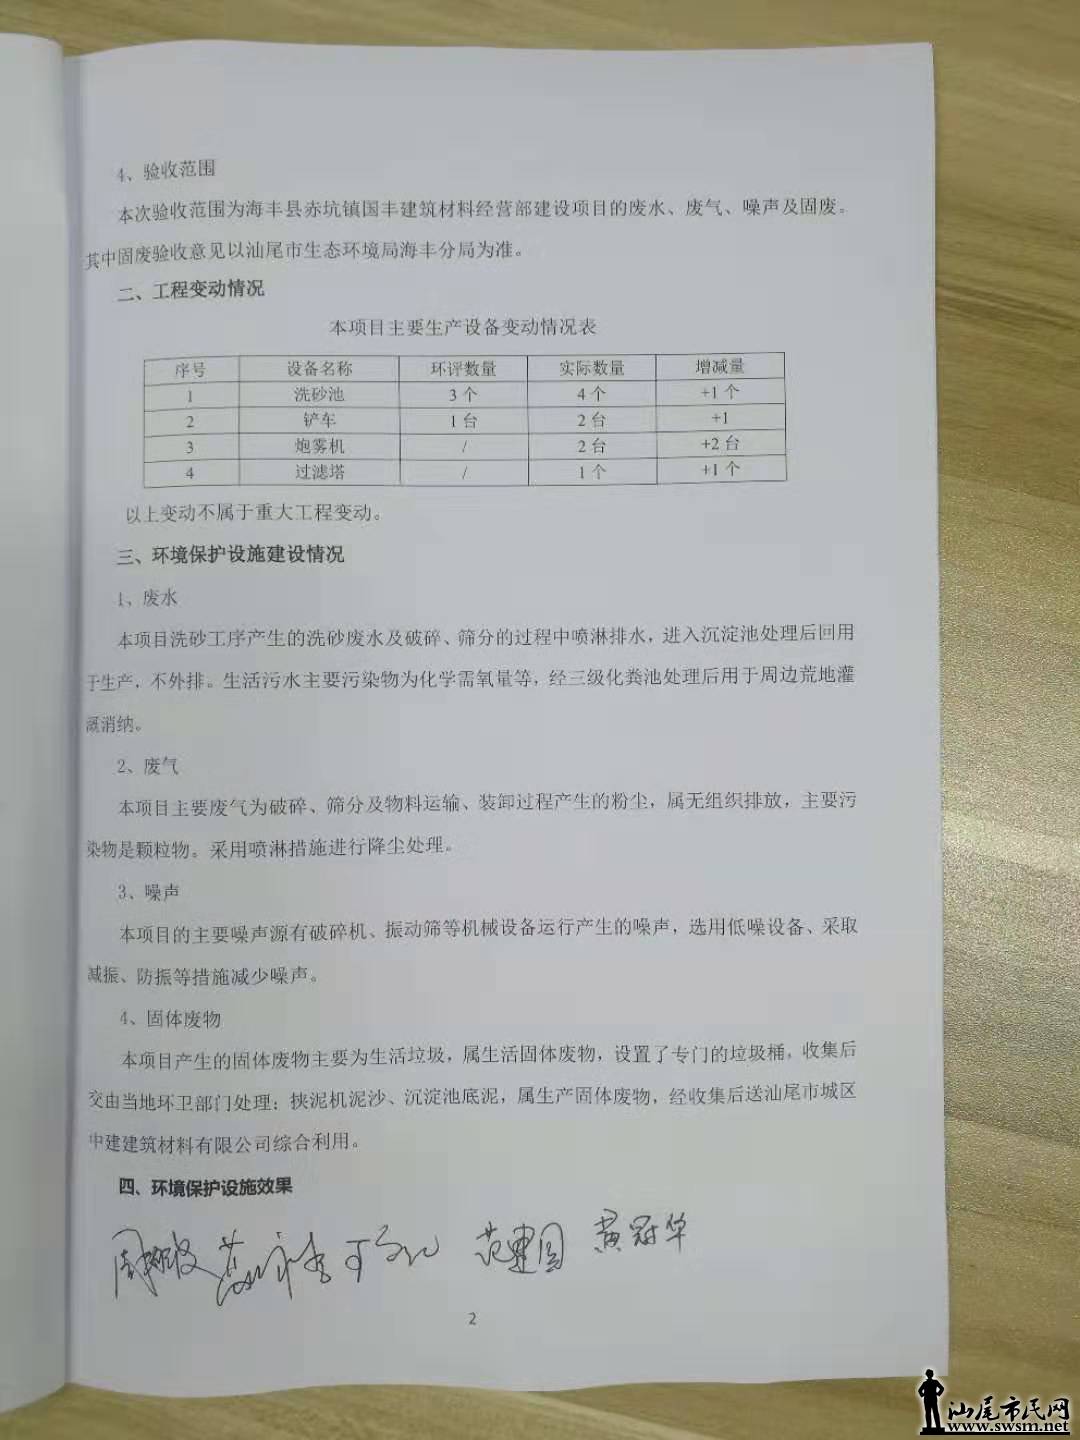 4、验收范围
本次验收范围为海丰县赤坑镇国丰建筑材料经营部建设项目的废水、废气、噪声及固废。
其中固废验收意见以汕尾市生态环境局海丰分局为准。
二、工程变动情况
本项目主要生产设备变动情况表
序号 设备名称 环评数量 实际数量 增减量
1 洗砂池 3个 4个 +1个
2 铲车 1台 2台 +1
3 炮雾机 / 2台 +2台
4 过滤塔 / 1个 +1个
以上变动不属于重大工程变动。
三、环境保护设施建设情况
1、废水
本项目洗砂工序产生的洗砂废水及破碎、筛分的过程中喷淋排水，进入沉淀池处理后回用
于生产，不外排。生活污水主要污染物为化学需氧量等，经三级化粪池处理后用于周边荒地灌
溉消纳。
2、废气
本项目主要废气为破碎、筛分及物料运输、装卸过程产生的粉尘，属无组织排放，主要污
染物是颗粒物。采用喷淋措施进行降尘处理。
3、噪声
本项目的主要噪声源有破碎机、振动筛等机械设备运行产生的噪声，选用低噪设备、采取
减振、防振等措施减少噪声。
4、固体废物
本项目产生的固体废物主要为生活垃圾，属生活固体废物，设置了专门的垃圾桶，收集后
交由当地环卫部门处理；挟泥机泥沙、沉淀池底泥，属生产固体废物，经收集后送汕尾市城区
中建建筑材料有限公司综合利用。
四、环境保护设施效果
范建国 黄冠华
2
汕尾市民网
www.swsm.net